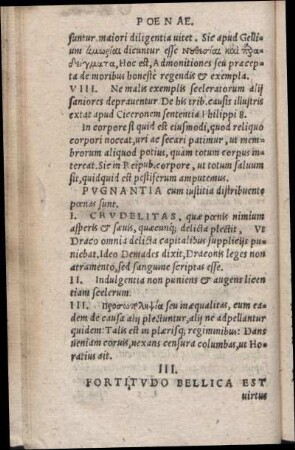 POENAE.
suntur. maiori diligentia vitet. Sic apud Gelli-
um ἀμωρίαι dicuntur esse Νυθεσίαι καὶ Παρα
δείγματα, Hoc est, Admonitiones seu præcep-
ta de moribus honestè regendis & exempla.
VIII. Ne malis exemplis sceleratorum alij
saniores deprauentur. De his trib. caussis illustris
extat apud Ciceronem sententia Philippi 8.
In corpore si quid est eiusmodi, quod reliquo
corpori noceat, vri ac secari patimur, ut mem-
brorum aliquod potius, quàm totum corpus in-
tercat. Sic in Reipub. corpore, ut totum saluum
sit, quidquid est pestiferum amputemus.
PVGNANTIA cum iustitia distribuente
pœnas sunt.
I. CRVDELITAS, quæ pœnis nimium
asperis & sæuis, quæcunq; delicta plectit, Vt
Draco omnia delicta capitalibus supplicijs pu-
niebat. Ideo Demades dixit, Draconis leges non
atramento, sed sanguine scriptas esse.
II. Indulgentia non puniens & augens licen
tiam scelerum.
III. Προσωποληψία seu inæqualitas, cum ea-
dem de causa alij plectuntur, alij ne adpellantur
quidem: Talis est in plærisq; regiminibus: Dans
ueniam coruis, uexans censura columbas, ut Ho-
ratius ait.
III.
FORTITVDO BELLICA EST
uirtus